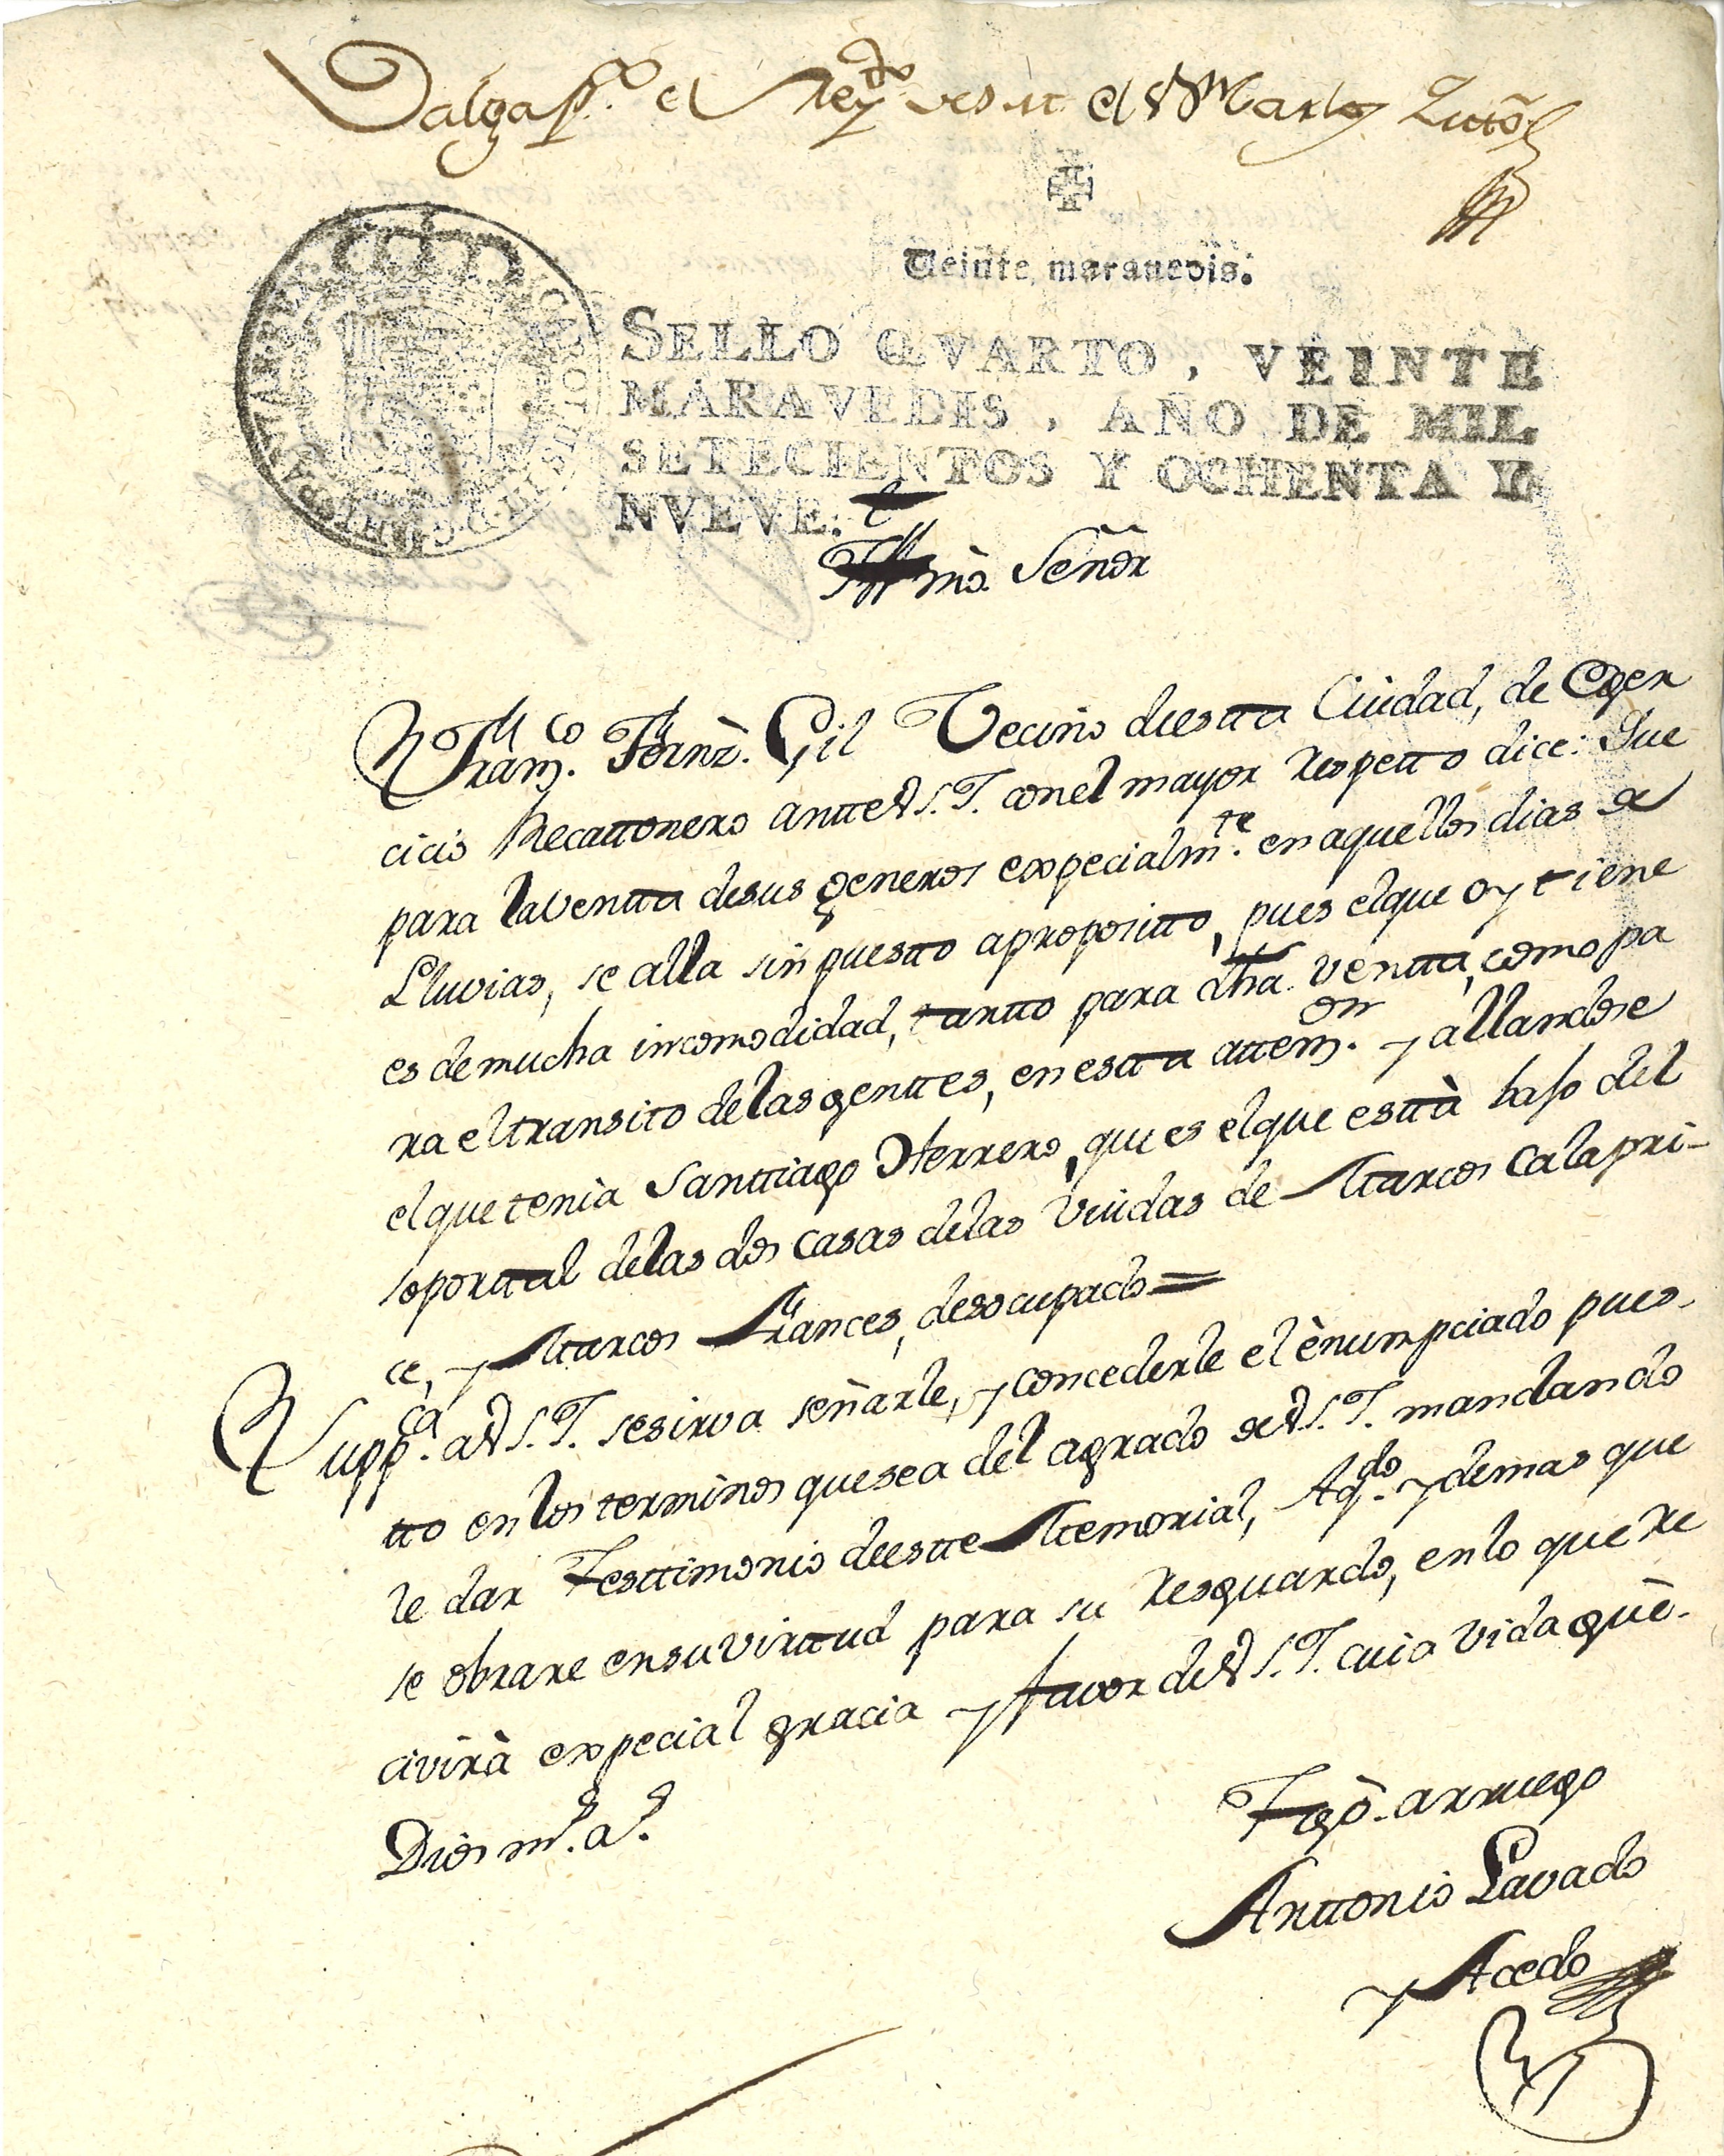 Valga p.ª el Rey.do
Veinte maravedis.
SELLO QVARTO, VEINTE
MARAVEDIS, AÑO DE MIL
SETECIENTOS Y OCHENTA Y
NVEVE.
Ill.mo Señor
Fran.co Fernz. Gil Vecino de estta Ciudad, de Exer
cicio Recattonero antte V.S.Y. con el mayor respetto dice: Que
para la ventta de sus generos expecialm.te en aquellos dias de
Lluvias, se alla sin puestto aproposito, pues el que oy tiene
es de mucha incomodidad, tantto para dha. ventta, como pa
ra el transito de las genttes, en estta atten.on y allandose
el que tenia Santtiago Herrero, que es el que esttà bajo del
soporttal de las dos casas de las Viudas de Marcos Calapri-
ce, y Marcos Frances, desocupado=
Supp.ca a V.S.Y. se sirva señarle, y concederle el ènumpciado pues-
tto en los terminos que sea del agrado de V.S.Y. mandando
le dar Testtimonio de estte Memorial, Aq.do y demas que
se obrare en su virttud para su resguardo, en lo que re
civirà expecial gracia y favor de V.S.Y. cuia vida guè.
Dios m.s a.s
Tgò. arruego
Anttonio Lavado
y Acedo